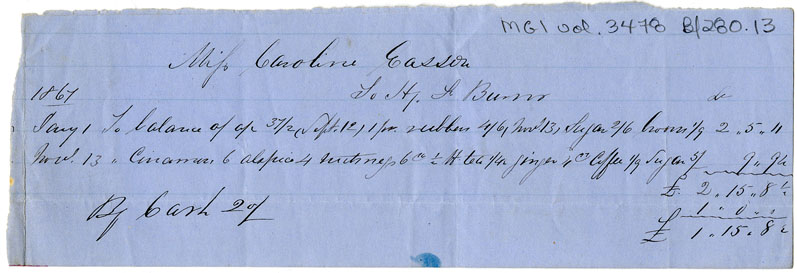 MG1 vol. 3478 B/280.13
Miss Caroline Casson
1867 To Hy. A Burns Dr
Jany 1 To balance of a/c 37/2, Sept. 12, 1 pr. rubbers 4/6, Novr 13, Sugar 2/6 broom 1/9 2 " 5 " 11
Novr. 13 " Cinamon 6 alspice 4 nutmegs 6 1/2 lb tea ginger 4 Coffee 1/9 Sugar 5/ 9 " 9 1/2
£ 2 " 15 " 8 1/2
By Cash 20/ 1 " 0 " "
£ 1 " 15 " 8 1/2